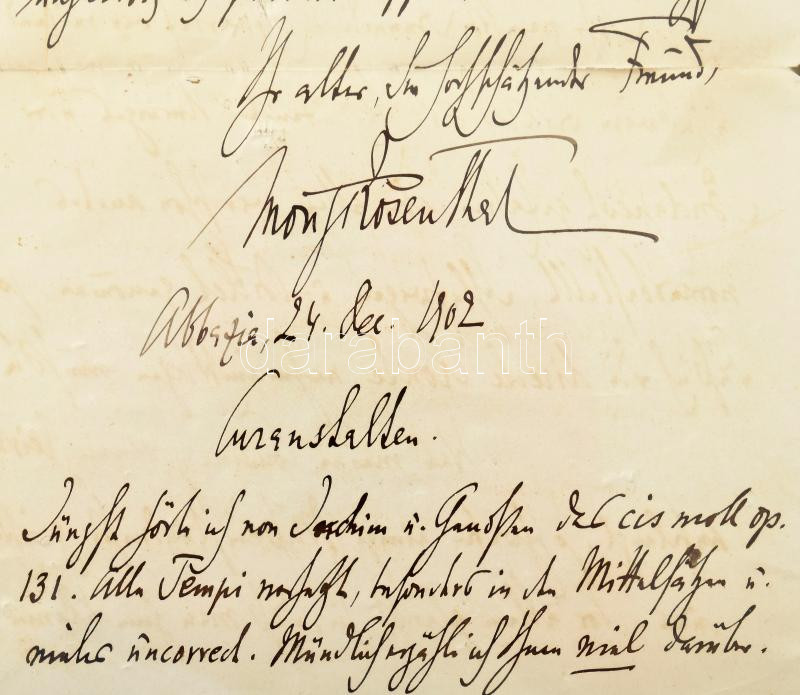 Ihr alter, Sie hochschätzender Freund,
Moriz Rosenthal
Abbazia, 24. Dec. 1902
darabanth
Curanstalten.
Jüngst hörte ich von Joachim u. Genossen das cis moll op.
131. Alle Tempi verhetzt, besonders in den Mittelsätzen u.
vieles uncorrect. Mündlich erzähl ich Ihnen viel darüber.